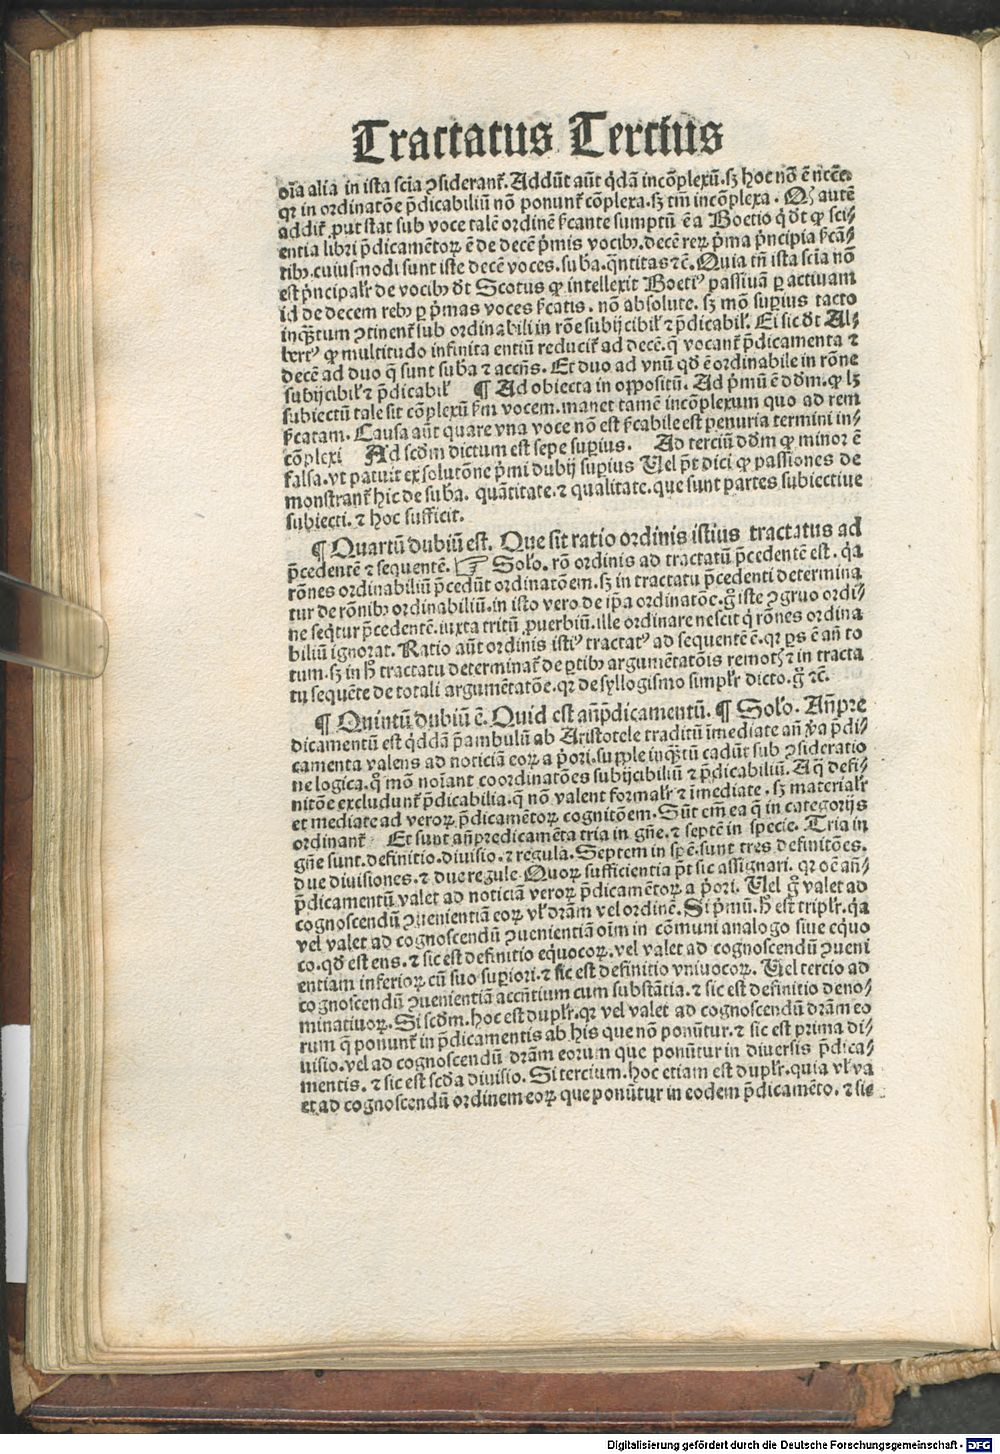 Tractatus Tercius
oīa alia in ista scīa ꝯsiderant᷑. Addūt aūt q̇dā incōplexū. sꝫ hoc nō ē nccē.
qꝛ in ordinatōe p̄dicabiliū nō ponunt᷑ cōplexa. sꝫ tm̄ incōplexa. Qꝫ autē
addit᷑. put stat sub voce talē ordinē ſcante sumptū ē a Boetio q̇ dt̄ ꝙ sci⸗
entia libri p̄dicamētoꝝ ē de decē p̄mis vocibꝰ. decē reꝝ p̄ma p̄ncipia ſcā⸗
tibꝰ. cuiusmodi sunt iste decē voces. suba. q̄ntitas ⁊c̄. Quia tn̄ ista scīa nō
est p̄ncipalr̄ de vocibꝰ dt̄ Scotus ꝙ intellexit Boetiꝰ passiuā ꝑ actiuam
id de decem rebꝰ ꝑ p̄mas voces ſcatis. nō absolute. sꝫ mō supius tacto
inq̄ꝫtum ꝯtinent᷑ sub ordinabili in rōe subijcibil᷑ ⁊ p̄dicabil᷑. Et sic dt̄ Al⸗
bertꝰ ꝙ multitudo infinita entiū reducit᷑ ad decē. q̄ vocant᷑ p̄dicamenta ⁊
decē ad duo q̄ sunt suba ⁊ accn̄s. Et duo ad vnū qd̄ ē ordinabile in rōne
subijcibil᷑ ⁊ p̄dicabil᷑ ¶ Ad obiecta in oppositū. Ad p̄mū ē dd̄m. ꝙ lꝫ
subiectū tale sit cōplexū ſm vocem. manet tamē incōplexum quo ad rem
ſcatam. Causa aūt quare vna voce nō est ſcabile est penuria termini in⸗
cōplexi Ad scd̄m dictum est sepe supius. Ad terciū dd̄m ꝙ minor ē
falsa. vt patuit ex solutōne p̄mi dubij supius Uel pt̄ dici ꝙ passiones de
monstrant᷑ hic de suba. quātitate. ⁊ qualitate. que sunt partes subiectiue
subiecti. ⁊ hoc sufficit.
¶ Quartū dubiū est. Que sit ratio ordinis istius tractatus ad
p̄cedentē ⁊ sequentē. ☞ Solo. rō ordinis ad tractatū p̄cedentē est. q̇a
rōnes ordinabiliū p̄cedūt ordinatōem. sꝫ in tractatu p̄cedenti determina
tur de rōnibꝰ ordinabiliū. in isto vero de ip̄a ordinatōe. g̊ iste ꝯgruo ordi⸗
ne seq̇tur p̄cedentē. iuxta tritū ꝓuerbiū. ille ordinare nescit q̇ rōnes ordina
biliū ignorat. Ratio aūt ordinis istiꝰ tractatꝰ ad sequentē ē. qꝛ ꝑs ē an̄ to
tum. sꝫ in h̄ tractatu determinat᷑ de ꝑtibꝰ argumētatōis remotꝭ ⁊ in tracta
tu sequēte de totali argumētatōe. qꝛ de syllogismo simplr̄ dicto. g̊ ⁊c̄.
¶ Quintū dubiū ē. Quid est an̄p̄dicamentū. ¶ Solo. An̄pre
dicamentū est q̇ddā p̄ambulū ab Aristotele traditū īmediate an̄ v̄a p̄di⸗
camenta valens ad noticiā eoꝝ a p̄ori. supple inq̄ꝫtū cadūt sub ꝯsideratio
ne logica. q̊ mō noīant coordinatōes subijcibiliū ⁊ p̄dicabiliū. A q̄ defi⸗
nitōe excludunt᷑ p̄dicabilia. q̄ nō valent formalr̄ ⁊ īmediate. sꝫ materialr̄
et mediate ad veroꝝ p̄dicamētoꝝ cognitōem. Sūt em̄ ea q̄ in categorijs
ordinant᷑ Et sunt an̄predicamēta tria in gn̄e. ⁊ septē in specie. Tria in
gn̄e sunt. definitio. diuisio. ⁊ regula. Septem in sp̄e. sunt tres definitōes.
due diuisiones. ⁊ due regule Quoꝝ sufficientia pt̄ sic assignari. qꝛ oē an̄⸗
p̄dicamentū valet ad noticiā veroꝝ p̄dicamētoꝝ a p̄ori. Uel g̊ valet ad
cognoscendū ꝯuenientiā eoꝝ vl᷑ drām vel ordinē. Si p̄mū. h̄ est triplr̄. q̇a
vel valet ad cognoscendū ꝯuenientiā oīm in cōmuni analogo siue eq̇uo
co. qd̄ est ens. ⁊ sic est definitio eq̇uocoꝝ. vel valet ad cognoscendū ꝯueni
entiam inferioꝝ cū suo supiori. ⁊ sic est definitio vniuocoꝝ. Uel tercio ad
cognoscendū ꝯuenientiā accn̄tium cum substātia. ⁊ sic est definitio deno⸗
minatiuoꝝ. Si scd̄m. hoc est duplr̄. qꝛ vel valet ad cognoscendū drām eo
rum q̄ ponunt᷑ in p̄dicamentis ab his que nō ponūtur. ⁊ sic est prima di⸗
uisio. vel ad cognoscendū drām eorum que ponūtur in diuersis p̄dica⸗
mentis. ⁊ sic est scd̄a diuisio. Si tercium. hoc etiam est duplr̄. quia vl᷑ va
et ad cognoscendū ordinem eoꝝ que ponūtur in eodem p̄dicamēto. ⁊ sic
Digitalisierung gefördert durch die Deutsche Forschungsgemeinschaft - DFG